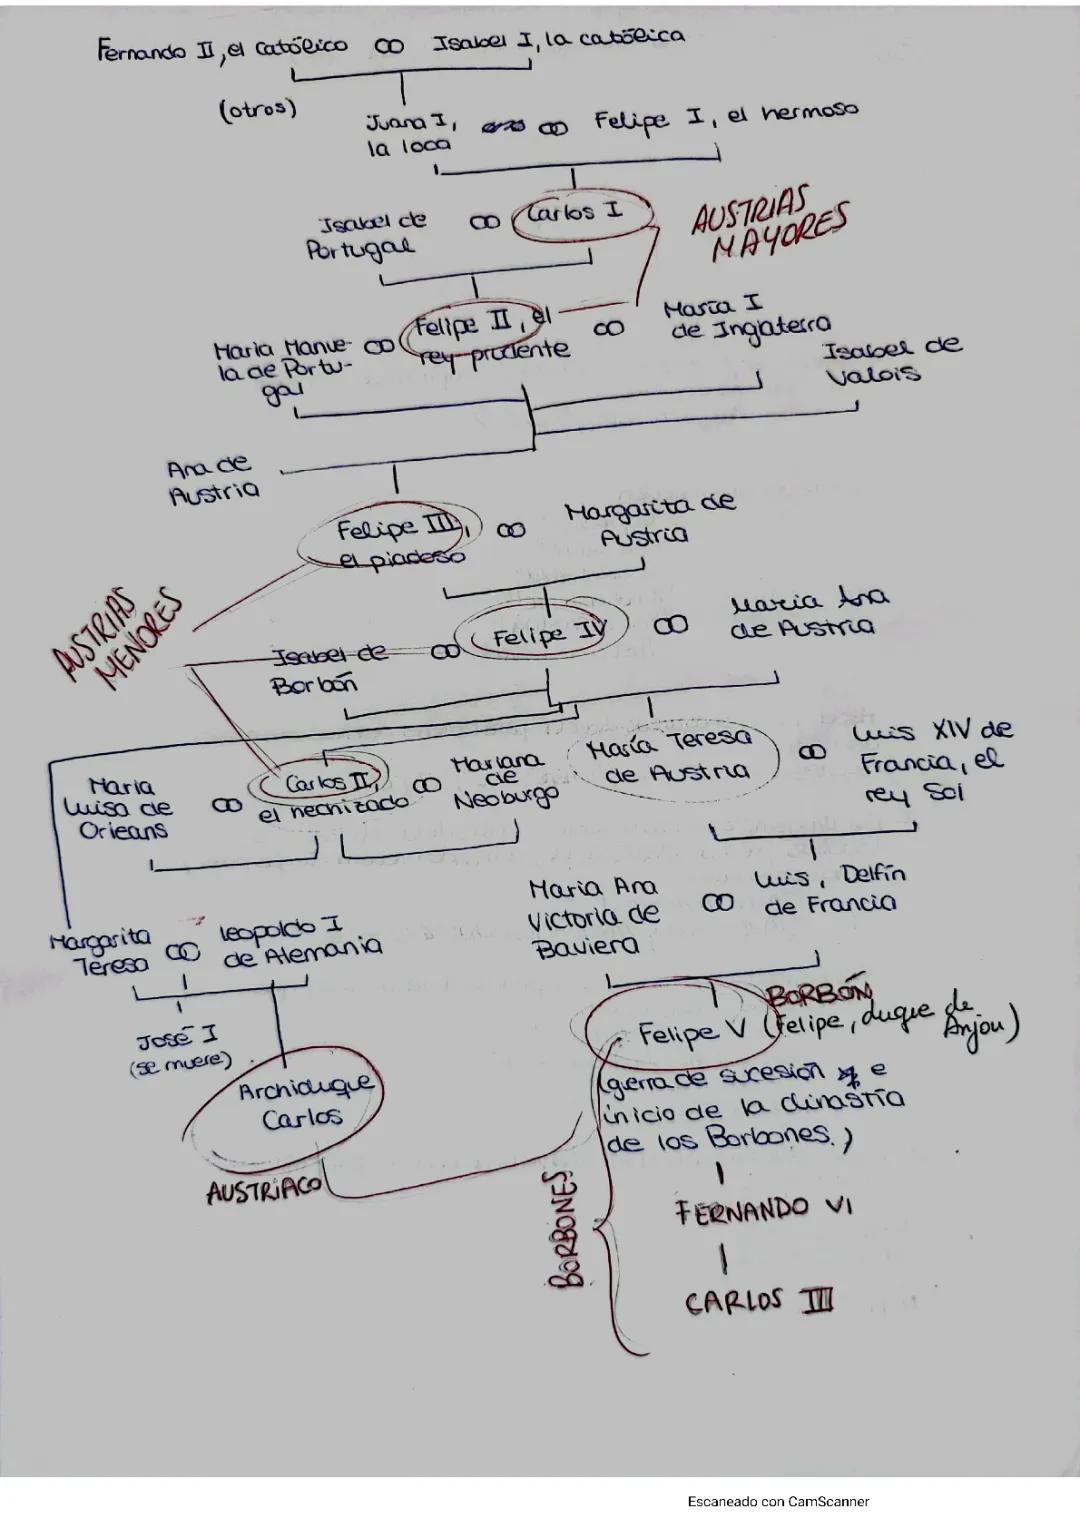 Fernando II, el católico ∞ Isabel I, la católica
(otros)
Juana I,
la loca
∞ Felipe I, el hermoso
Isabel de
Portugal
∞ Carlos I
AUSTRIAS
MAYORES
Maria Manue-
la de Portu-
gal
∞ Felipe II, el
rey prudente
∞ María I
de Inglaterra
Isabel de
Valois
Ana de
Austria
Felipe III,
el piadoso
∞ Margarita de
Austria
AUSTRIAS
MENORES
Isabel de
Borbón
∞ Felipe IV ∞
Maria Ana
de Austria
Maria
Luisa de
Orleans
∞ Carlos II,
el hechizado
∞ Mariana
de
Neoburgo
María Teresa
de Austria
∞ Luis XIV de
Francia, el
rey Sol
Maria Ana
Victoria de
Baviera
∞ Luis, Delfín
de Francia
Margarita
Teresa
∞ Leopoldo I
de Alemania
José I
(se muere)
Archiduque
Carlos
AUSTRIACO
BORBÓN
Felipe V (Felipe, duque de
Anjou)
(gerra de sucesión e
inicio de la dinastía
de los Borbones.)
BORBONES
FERNANDO VI
CARLOS III
Escaneado con CamScanner